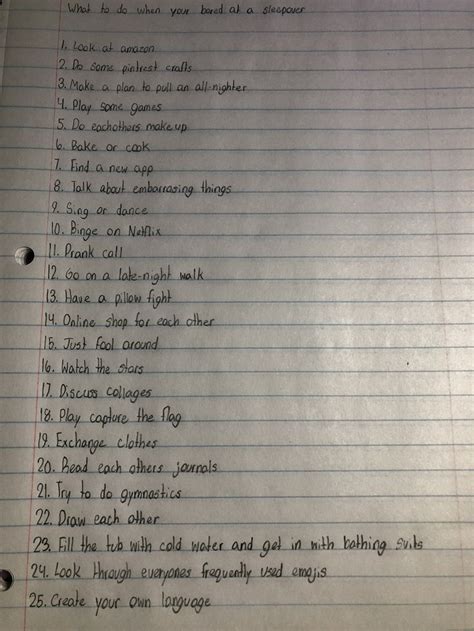 What to do when your bored at a sleepover
1. Look at amazon
2. Do some pintrest crafts
3. Make a plan to pull an all-nighter
4. Play some games
5. Do eachothers makeup
6. Bake or cook
7. Find a new app
8. Talk about embarrasing things
9. Sing or dance
10. Binge on Netflix
11. Prank call
12. Go on a late-night walk
13. Have a pillow fight
14. Online shop for each other
15. Just fool around
16. Watch the stars
17. Discuss collages
18. Play capture the flag
19. Exchange clothes
20. Read each others journals
21. Try to do gymnastics
22. Draw each other
23. Fill the tub with cold water and get in with bathing suits
24. Look through everyones frequently used emojis
25. Create your own language